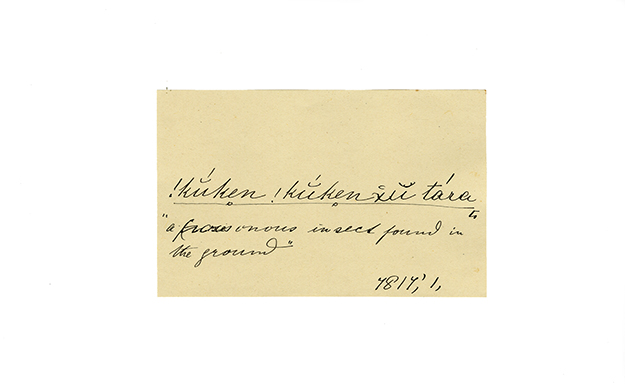 !kúken !kúken xŭ tára
"a poisonous insect found in
the ground"
7817', 1,